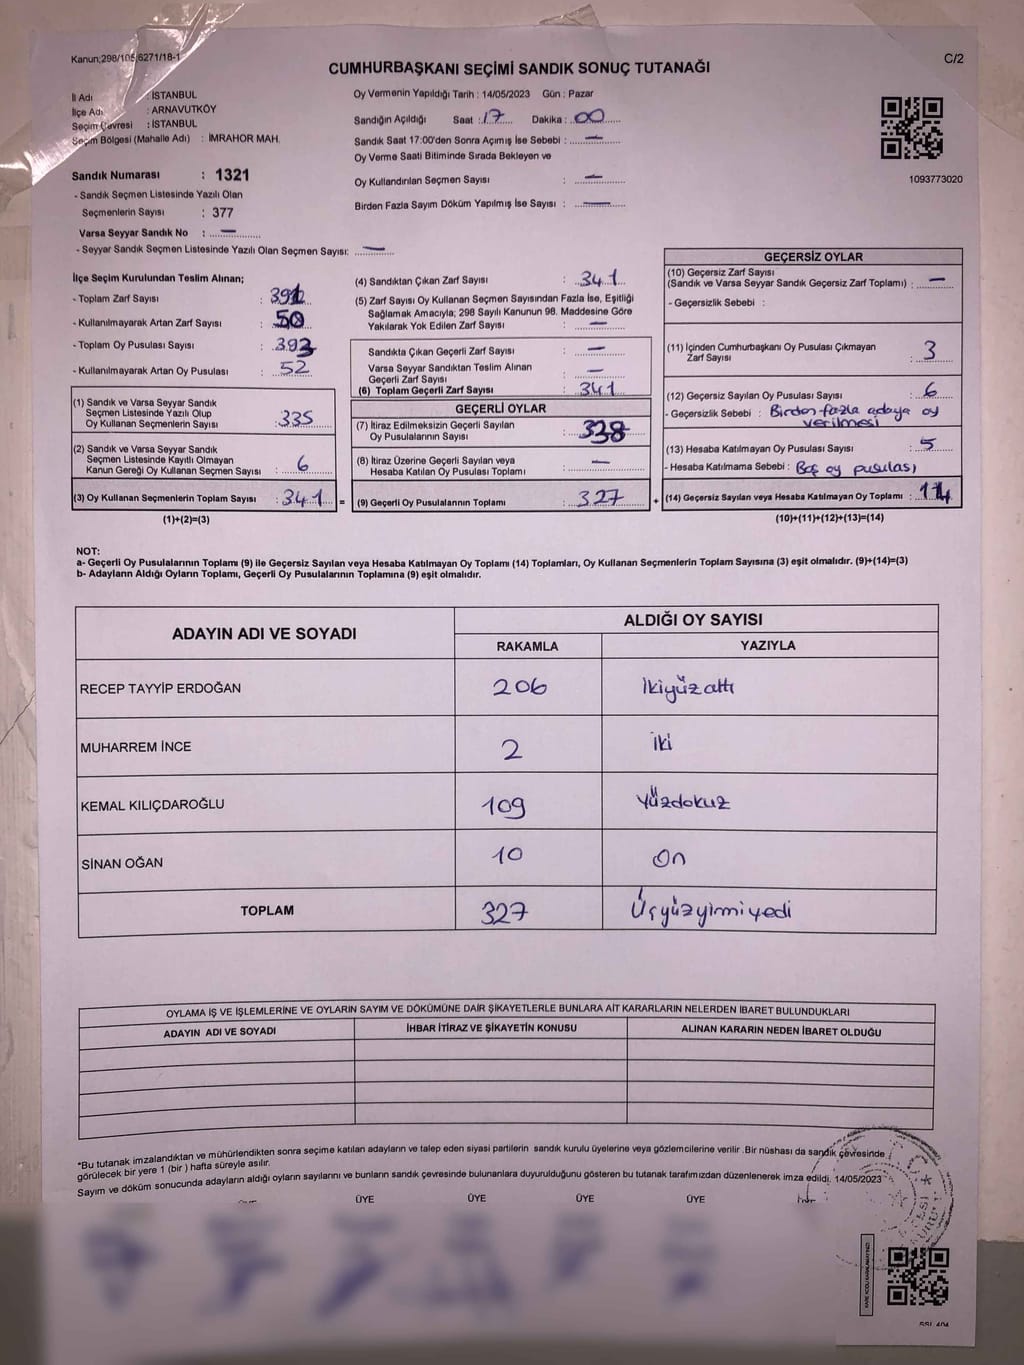 Kanun;298/105,6271/18-1
C/2
CUMHURBAŞKANI SEÇİMİ SANDIK SONUÇ TUTANAĞI
İl Adı : İSTANBUL
İlçe Adı : ARNAVUTKÖY
Seçim Çevresi : İSTANBUL
Seçim Bölgesi (Mahalle Adı) : İMRAHOR MAH.
Oy Vermenin Yapıldığı Tarih : 14/05/2023 Gün : Pazar
Sandığın Açıldığı Saat : 17 Dakika : 00
Sandık Saat 17:00'den Sonra Açımış İse Sebebi : —
Oy Verme Saati Bitiminde Sırada Bekleyen ve
Oy Kullandırılan Seçmen Sayısı : —
Birden Fazla Sayım Döküm Yapılmış İse Sayısı : —
1093773020
Sandık Numarası : 1321
- Sandık Seçmen Listesinde Yazılı Olan
Seçmenlerin Sayısı : 377
Varsa Seyyar Sandık No : —
- Seyyar Sandık Seçmen Listesinde Yazılı Olan Seçmen Sayısı: —
İlçe Seçim Kurulundan Teslim Alınan;
- Toplam Zarf Sayısı :
- Kullanılmayarak Artan Zarf Sayısı : 50
- Toplam Oy Pusulası Sayısı : 393
- Kullanılmayarak Artan Oy Pusulası : 52
(1) Sandık ve Varsa Seyyar Sandık
Seçmen Listesinde Yazılı Olup
Oy Kullanan Seçmenlerin Sayısı : 335
(2) Sandık ve Varsa Seyyar Sandık
Seçmen Listesinde Kayıtlı Olmayan
Kanun Gereği Oy Kullanan Seçmen Sayısı : 6
(3) Oy Kullanan Seçmenlerin Toplam Sayısı : 341 =
(1)+(2)=(3)
(4) Sandıktan Çıkan Zarf Sayısı : 341
(5) Zarf Sayısı Oy Kullanan Seçmen Sayısından Fazla İse, Eşitliği
Sağlamak Amacıyla; 298 Sayılı Kanunun 98. Maddesine Göre
Yakılarak Yok Edilen Zarf Sayısı : —
Sandıkta Çıkan Geçerli Zarf Sayısı : —
Varsa Seyyar Sandıktan Teslim Alınan
Geçerli Zarf Sayısı : —
(6) Toplam Geçerli Zarf Sayısı : 341
GEÇERLİ OYLAR
(7) İtiraz Edilmeksizin Geçerli Sayılan
Oy Pusulalarının Sayısı :
(8) İtiraz Üzerine Geçerli Sayılan veya
Hesaba Katılan Oy Pusulası Toplamı : —
(9) Geçerli Oy Pusulalarının Toplamı : 327 +
GEÇERSİZ OYLAR
(10) Geçersiz Zarf Sayısı
(Sandık ve Varsa Seyyar Sandık Geçersiz Zarf Toplamı) : —
- Geçersizlik Sebebi :
(11) İçinden Cumhurbaşkanı Oy Pusulası Çıkmayan
Zarf Sayısı : 3
(12) Geçersiz Sayılan Oy Pusulası Sayısı : 6
- Geçersizlik Sebebi : Birden fazla adaya oy
verilmesi
(13) Hesaba Katılmayan Oy Pusulası Sayısı : 5
- Hesaba Katılmama Sebebi : Boş oy pusulası
(14) Geçersiz Sayılan veya Hesaba Katılmayan Oy Toplamı : 14
(10)+(11)+(12)+(13)=(14)
NOT:
a- Geçerli Oy Pusulalarının Toplamı (9) ile Geçersiz Sayılan veya Hesaba Katılmayan Oy Toplamı (14) Toplamları, Oy Kullanan Seçmenlerin Toplam Sayısına (3) eşit olmalıdır. (9)+(14)=(3)
b- Adayların Aldığı Oyların Toplamı, Geçerli Oy Pusulalarının Toplamına (9) eşit olmalıdır.
ADAYIN ADI VE SOYADI ALDIĞI OY SAYISI
RAKAMLA YAZIYLA
RECEP TAYYİP ERDOĞAN 206 İkiyüzaltı
MUHARREM İNCE 2 iki
KEMAL KILIÇDAROĞLU 109 Yüzdokuz
SİNAN OĞAN 10 On
TOPLAM 327 Üçyüzyirmiyedi
OYLAMA İŞ VE İŞLEMLERİNE VE OYLARIN SAYIM VE DÖKÜMÜNE DAİR ŞİKAYETLERLE BUNLARA AİT KARARLARIN NELERDEN İBARET BULUNDUKLARI
ADAYIN ADI VE SOYADI İHBAR İTİRAZ VE ŞİKAYETİN KONUSU ALINAN KARARIN NEDEN İBARET OLDUĞU
*Bu tutanak imzalandıktan ve mühürlendikten sonra seçime katılan adayların ve talep eden siyasi partilerin sandık kurulu üyelerine veya gözlemcilerine verilir .Bir nüshası da sandık çevresinde
görülecek bir yere 1 (bir ) hafta süreyle asılır.
Sayım ve döküm sonucunda adayların aldığı oyların sayılarını ve bunların sandık çevresinde bulunanlara duyurulduğunu gösteren bu tutanak tarafımızdan düzenlenerek imza edildi. 14/05/2023
ÜYE ÜYE ÜYE ÜYE